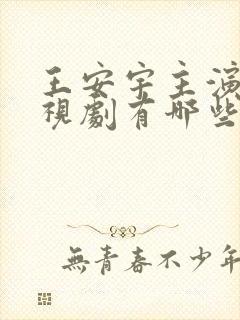 王安宇主演
視劇有哪些
無青春不少年